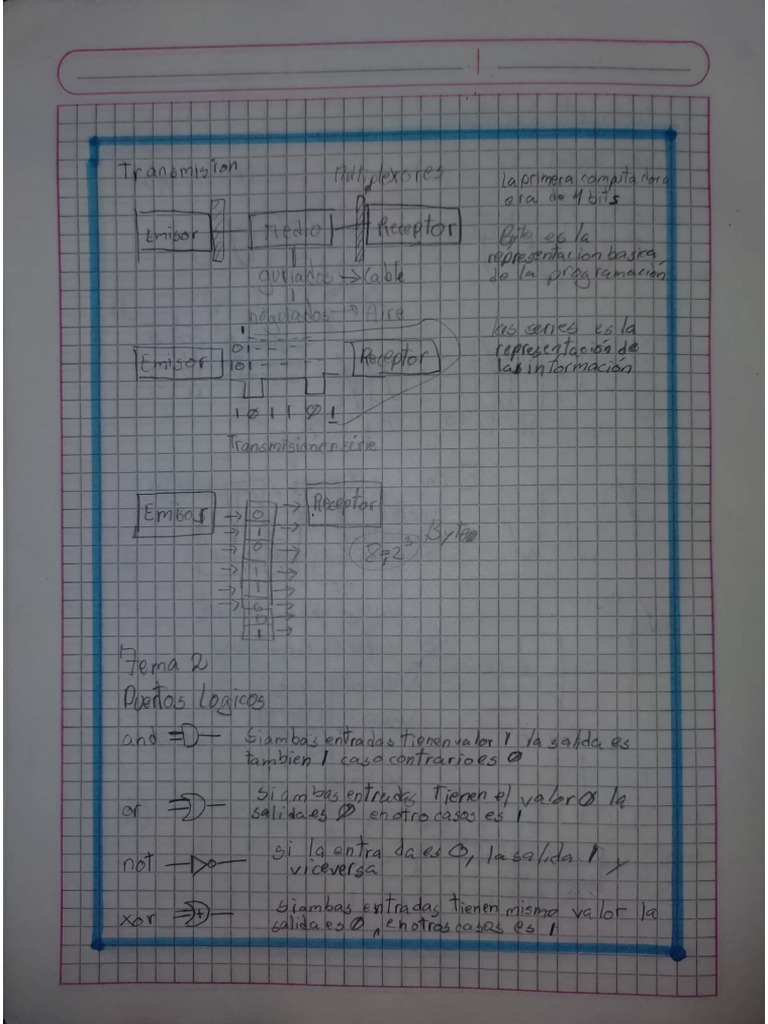 Transmision
Multiplexores
Emisor
Medio
Receptor
guiados → Cable
Aire
la primera computadora
era de 4 bits
Byte es la
representacion basica
de la programación
las series es la
representación de
la información
Emisor
1
01
101
Receptor
1 0 1 1 0 1
Transmision en serie
Emisor
0
1
0
1
1
0
0
1
Receptor
8=2³
Byte
Tema 2
Puertos Logicos
and
si ambas entradas tienen valor 1 la salida es
tambien 1 caso contrario es 0
or
si ambas entradas tienen el valor 0 la
salida es 0 en otro casos es 1
not
si la entrada es 0, la salida 1 y
viceversa
xor
+
si ambas entradas tienen mismo valor la
salida es 0, en otros casos es 1